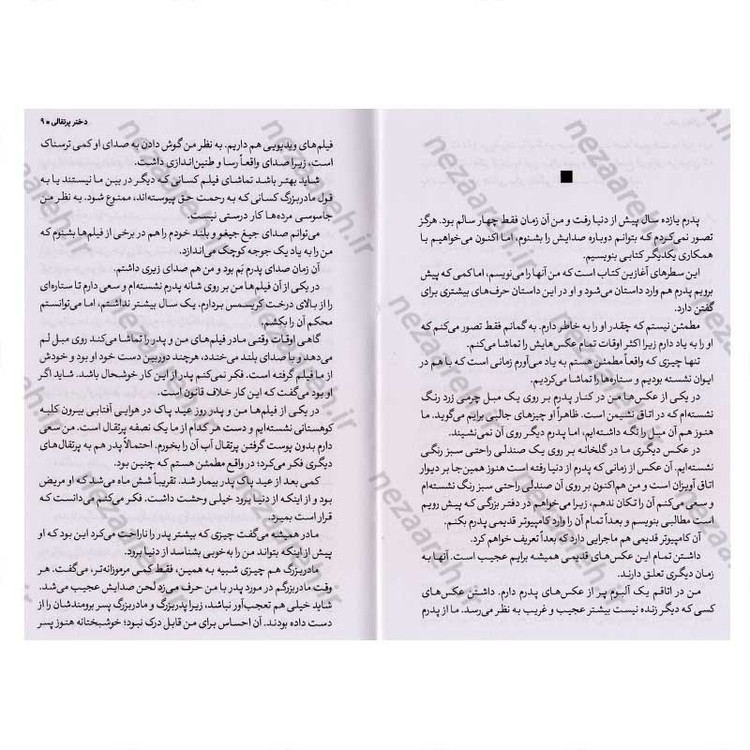 پدرم یازده سال پیش از دنیا رفت و من آن زمان فقط چهار سالم بود. هرگز
تصور نمی‌کردم که بتوانم دوباره صدایش را بشنوم، اما اکنون می‌خواهیم با
همکاری یکدیگر کتابی بنویسیم.
این سطرهای آغازین کتاب است که من آنها را می‌نویسم، اما کمی که پیش
برویم پدرم هم وارد داستان می‌شود و او در این داستان حرف‌های بیشتری برای
گفتن دارد.
مطمئن نیستم که چقدر او را به خاطر دارم. به گمانم فقط تصور می‌کنم که
او را به یاد دارم زیرا اکثر اوقات تمام عکس‌هایش را تماشا می‌کنم.
تنها چیزی که واقعاً مطمئن هستم به یاد می‌آورم زمانی است که با هم در
ایوان نشسته بودیم و ستاره‌ها را تماشا می‌کردیم.
در یکی از عکس‌ها من در کنار پدرم بر روی یک مبل چرمی زرد رنگ
نشسته‌ام که در اتاق نشیمن است. ظاهراً او چیزهای جالبی برایم می‌گوید. ما
هنوز هم آن مبل را نگه داشته‌ایم، اما پدرم دیگر روی آن نمی‌نشیند.
در عکس دیگری ما در گلخانه بر روی یک صندلی راحتی سبز رنگی
نشسته‌ایم. آن عکس از زمانی که پدرم از دنیا رفته است هنوز همین‌جا بر دیوار
اتاق آویزان است و من هم‌اکنون بر روی آن صندلی راحتی سبز رنگ نشسته‌ام
و سعی می‌کنم آن را تکان ندهم، زیرا می‌خواهم در دفتر بزرگی که پیش رویم
است مطالبی بنویسم و بعداً تمام آن را وارد کامپیوتر قدیمی پدرم بکنم.
آن کامپیوتر قدیمی هم ماجرایی دارد که بعداً تعریف خواهم کرد.
داشتن تمام این عکس‌های قدیمی همیشه برایم عجیب است. آنها به
زمان دیگری تعلق دارند.
من در اتاقم یک آلبوم پر از عکس‌های پدرم دارم. داشتن عکس‌های
کسی که دیگر زنده نیست بیشتر عجیب و غریب به نظر می‌رسد. ما از پدرم
دختر پرتقالی ■ ۹
فیلم‌های ویدیویی هم داریم. به نظر من گوش دادن به صدای او کمی ترسناک
است، زیرا صدای واقعاً رسا و طنین‌اندازی داشت.
شاید بهتر باشد تماشای فیلم کسانی که دیگر در بین ما نیستند یا به
قول مادربزرگ کسانی که به رحمت حق پیوسته‌اند، ممنوع شود. به نظر من
جاسوسی مرده‌ها کار درستی نیست.
می‌توانم صدای جیغ جیغو و بلند خودم را هم در برخی از فیلم‌ها بشنوم که
من را به یاد یک جوجه کوچک می‌اندازد.
آن زمان صدای پدرم بَم بود و من هم صدای زیری داشتم.
در یکی از آن فیلم‌ها من بر روی شانه پدرم نشسته‌ام و سعی دارم تا ستاره‌ای
را از بالای درخت کریسمس بردارم. یک سال بیشتر نداشتم، اما می‌توانستم
محکم آن را بکشم.
گاهی اوقات وقتی مادر فیلم‌های من و پدر را تماشا می‌کند روی مبل لم
می‌دهد و با صدای بلند می‌خندد، هرچند دوربین دست خود او بود و خودش
از ما فیلم گرفته است. فکر نمی‌کنم پدر از این کار خوشحال باشد. شاید اگر
او بود می‌گفت که این کار خلاف قانون است.
در یکی از فیلم‌ها من و پدر روز عید پاک در هوایی آفتابی بیرون کلبه
کوهستانی نشسته‌ایم و دست هر کدام از ما یک نصفه پرتقال است. من سعی
دارم بدون پوست گرفتن پرتقال آب آن را بخورم. احتمالاً پدر هم به پرتقال‌های
دیگری فکر می‌کرد؛ در واقع مطمئن هستم که چنین بود.
کمی بعد از عید پاک پدر بیمار شد. تقریباً شش ماه می‌شد که او مریض
بود و از اینکه از دنیا برود خیلی وحشت داشت. فکر می‌کنم می‌دانست که
قرار است بمیرد.
مادر همیشه می‌گفت چیزی که بیشتر پدر را ناراحت می‌کرد این بود که او
پیش از اینکه بتواند من را به‌خوبی بشناسد از دنیا برود.
مادربزرگ هم چیزی شبیه به همین، فقط کمی مرموزانه‌تر، می‌گفت. هر
وقت مادربزرگم در مورد پدر با من حرف می‌زد لحن صدایش عجیب می‌شد.
شاید خیلی هم تعجب‌آور نباشد، زیرا پدربزرگ و مادربزرگ پسر برومندشان را از
دست داده بودند. آن احساس برای من قابل درک نبود؛ خوشبختانه هنوز پسر
nezaareh.ir